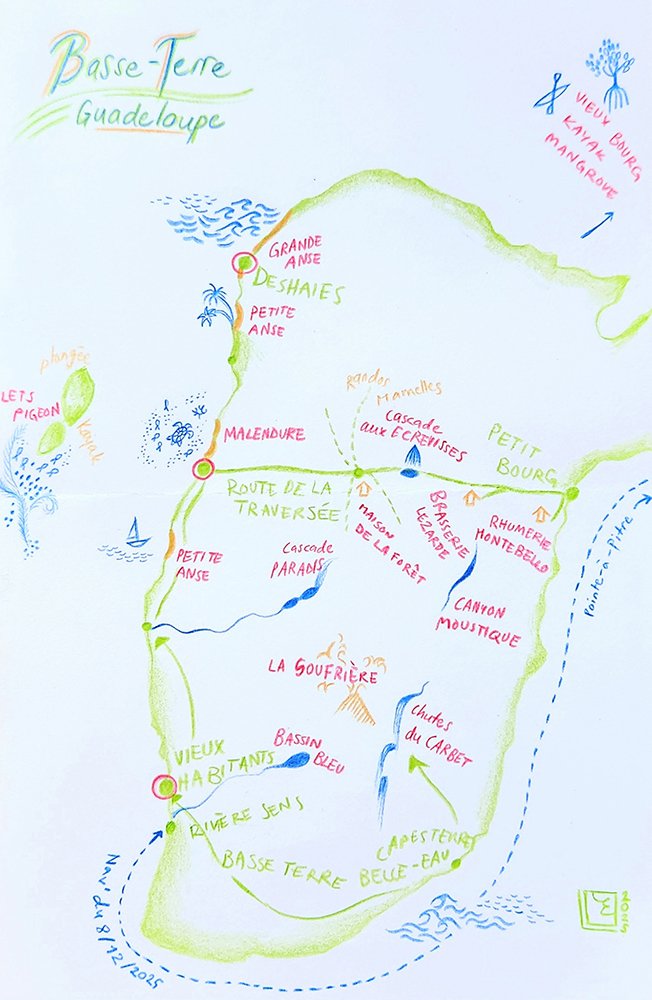 Basse-Terre
Guadeloupe
VIEUX BOURG
KAYAK
MANGROVE
GRANDE
ANSE
DESHAIES
PETITE
ANSE
plongée
LETS
PIGEON
Kayak
Randos
Mamelles
Cascade
aux ECREVISSES
MALENDURE
PETIT
BOURG
ROUTE DE LA
TRAVERSÉE
MAISON
DE LA FORÊT
BRASSERIE
LEZARDE
RHUMERIE
MONTEBELLO
Pointe-à-Pitre
PETITE
ANSE
Cascade
PARADIS
CANYON
MOUSTIQUE
LA SOUFRIÈRE
Chutes
du CARBET
VIEUX
HABITANTS
BASSIN
BLEU
RIVIÈRE SENS
BASSE TERRE
CAPESTERRE
BELLE-EAU
Navi du 8/12/2025
2025